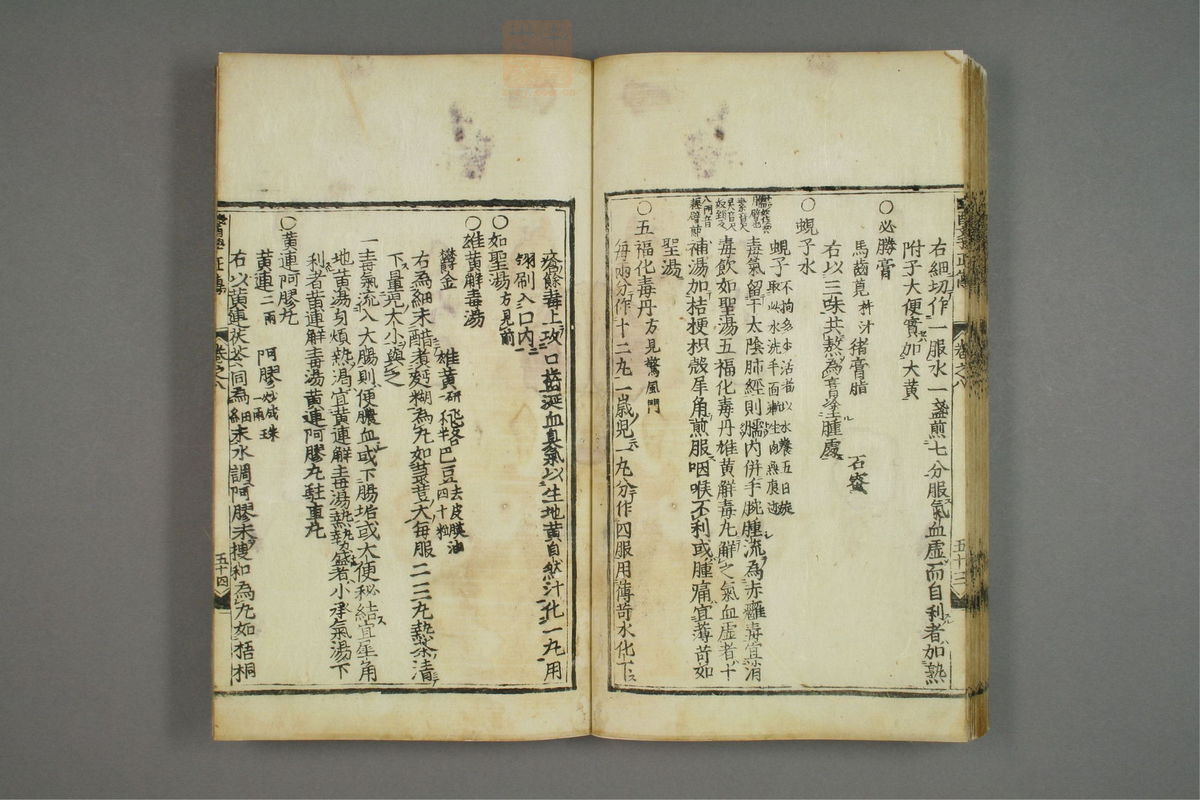 右細切作一服水一盞煎七分服氣血虛而自利者加熟
附子大便實加大黃
○必勝膏
馬齒莧杵汁 猪膏脂 石蜜
右以三味共熬為膏塗腫處
○蜆子水
蜆子不拘多少活者以水養五日旋
取此水洗手面漸生肉無痕迹
毒氣留于太陰肺經則臑內併手腕腫流為赤癰毒宜消
毒飲如聖湯五福化毒丹雄黃解毒丸解之氣血虛者十
補湯加桔梗枳殼犀角煎服咽喉不利或腫痛宜薄苛如
聖湯
○五福化毒丹方見驚風門
每兩分作十二丸一歲兒一丸分作四服用薄苛水化下
瘡餘毒上攻口齒涎血臭氣以生地黃自然汁化一丸用
翎刷入口內
○如聖湯方見前
○雄黃解毒湯
鬱金 雄黃研飛各一不半 巴豆去皮膜油四十粒
右為細末醋煮麪糊為丸如菉荳大每服二三丸熱茶清
下量兒大小與之
一毒氣流入大腸則便膿血或下腸垢或大便秘結宜犀角
地黃湯勻煩熱渴宜黃連解毒湯熱盛者小承氣湯下
利者黃連解毒湯黃連阿膠丸駐車丸
○黃連阿膠丸
黃連二兩 阿膠一兩炒成珠
右以黃連茯苓同為細末水調阿膠末搜和為丸如梧桐
卷之八
五十三
卷之八
五十四